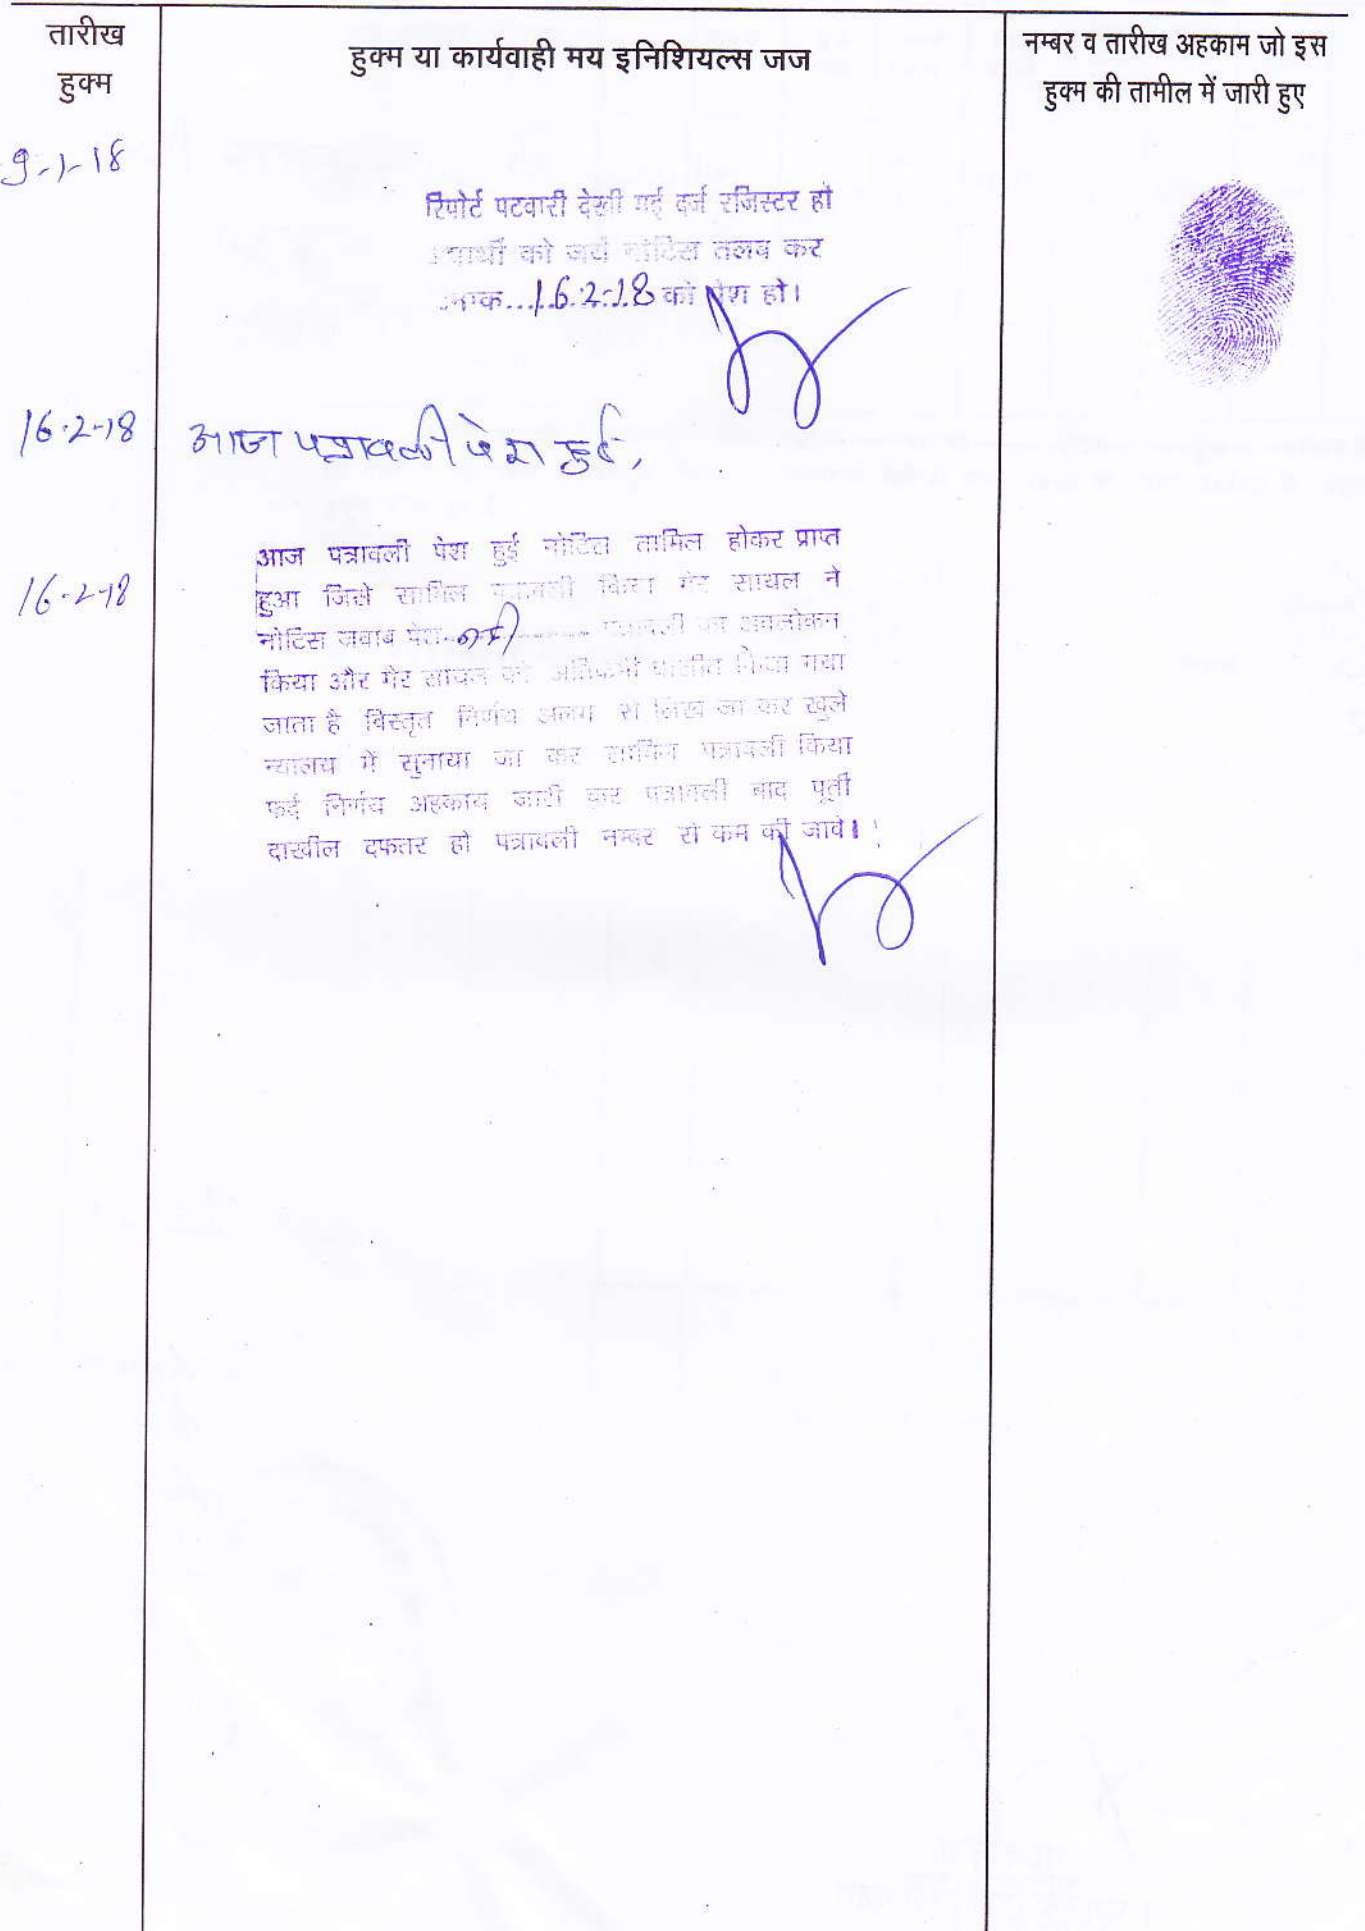 तारीख
हुक्म
हुक्म या कार्यवाही मय इनिशियल्स जज
नम्बर व तारीख अहकाम जो इस
हुक्म की तामील में जारी हुए
9-1-18
रिपोर्ट पटवारी देखी गई दर्ज रजिस्टर हो
को जर्ये नोटिस तलब कर
16.2.18 को पेश हो।
16.2-18
आज पत्रावली पेश हुई,
16-2-18
आज पत्रावली पेश हुई नोटिस तामिल होकर प्राप्त
हुआ जिसे सामिल पत्रावली किया गेर सायल ने
नोटिस जवाब पेश नही पत्रावली का अवलोकन
किया और गेर सायल को अतिक्रमी घाशीत किया गया
जाता है विस्तृत निर्णय अलग से लिख जा कर खुले
न्यालय में सुनाया जा कर सामिल पत्रावली किया
फर्द निर्णय अहकाय जारी कर पत्रावली बाद पूर्ती
दाखील दफतर हो पत्रावली नम्बर से कम की जावे।